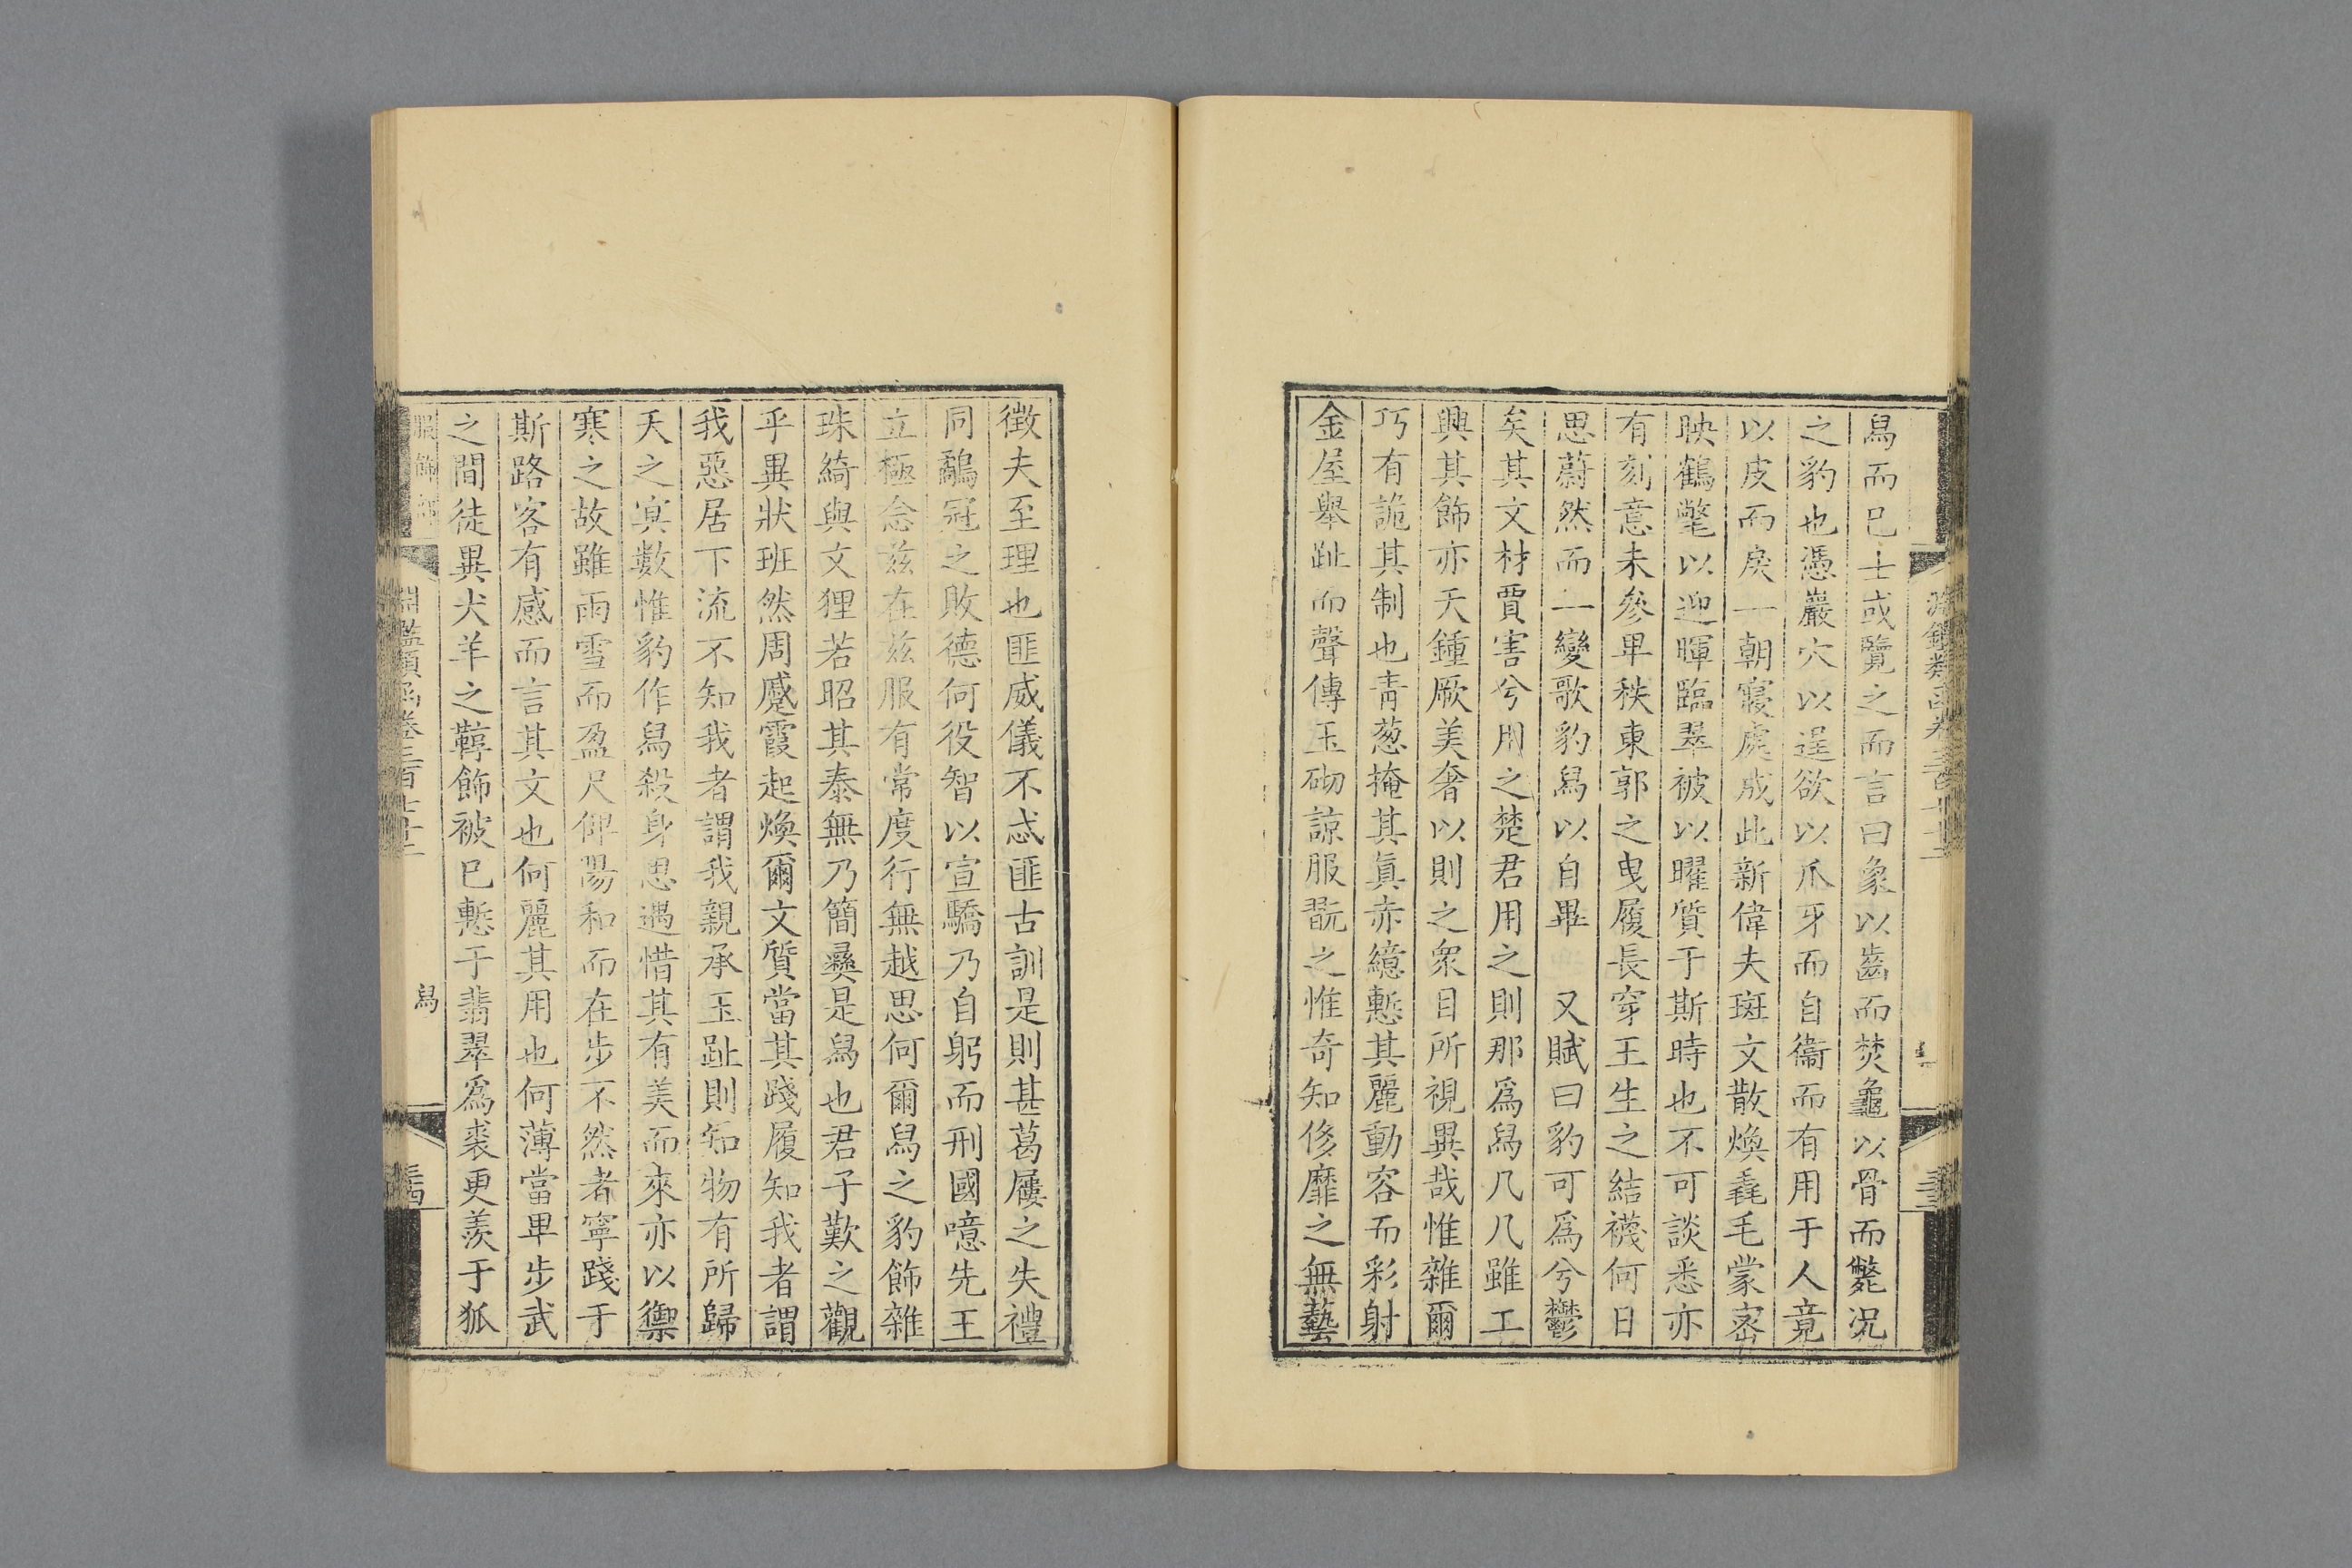 舄而已士或覽之而言曰象以齒而焚龜以骨而斃况
之豹也憑巖穴以逞欲以爪牙而自衞而有用于人竟
以皮而戾一朝寢處成此新偉夫斑文散煥毳毛蒙密
映鶴氅以迎暉臨翠被以曜質于斯時也不可談悉亦
有刻意未參卑秩東郭之曳履長穿王生之結襪何日
思蔚然而一變歌豹舄以自畢　又賦曰豹可爲兮鬱
矣其文材賈害兮用之楚君用之則那爲舄几几雖工
興其飾亦天鍾厥美奢以則之衆目所視異哉惟雜爾
巧有詭其制也靑葱掩其眞赤繶慙其麗動容而彩射
金屋舉趾而聲傳玉砌諒服翫之惟奇知侈靡之無藝
徴夫至理也匪威儀不忒匪古訓是則甚葛屨之失禮
同鷸冠之敗德何役智以宣驕乃自躬而刑國噫先王
立極念兹在兹服有常度行無越思何爾舄之豹飾雜
珠綺與文狸若昭其泰無乃簡彝是舄也君子歎之觀
乎異狀班然周蹙霞起煥爾文質當其踐履知我者謂
我惡居下流不知我者謂我親承玉趾則知物有所歸
天之㝠數惟豹作舄殺身思遇惜其有美而來亦以禦
寒之故雖雨雪而盈尺俾陽和而在步不然者寧踐于
斯路客有感而言其文也何麗其用也何薄當卑步武
之間徒異犬羊之鞹飾被已慙于翡翠爲裘更羨于狐
服飾部
淵鑑類函卷三百七十五
舄